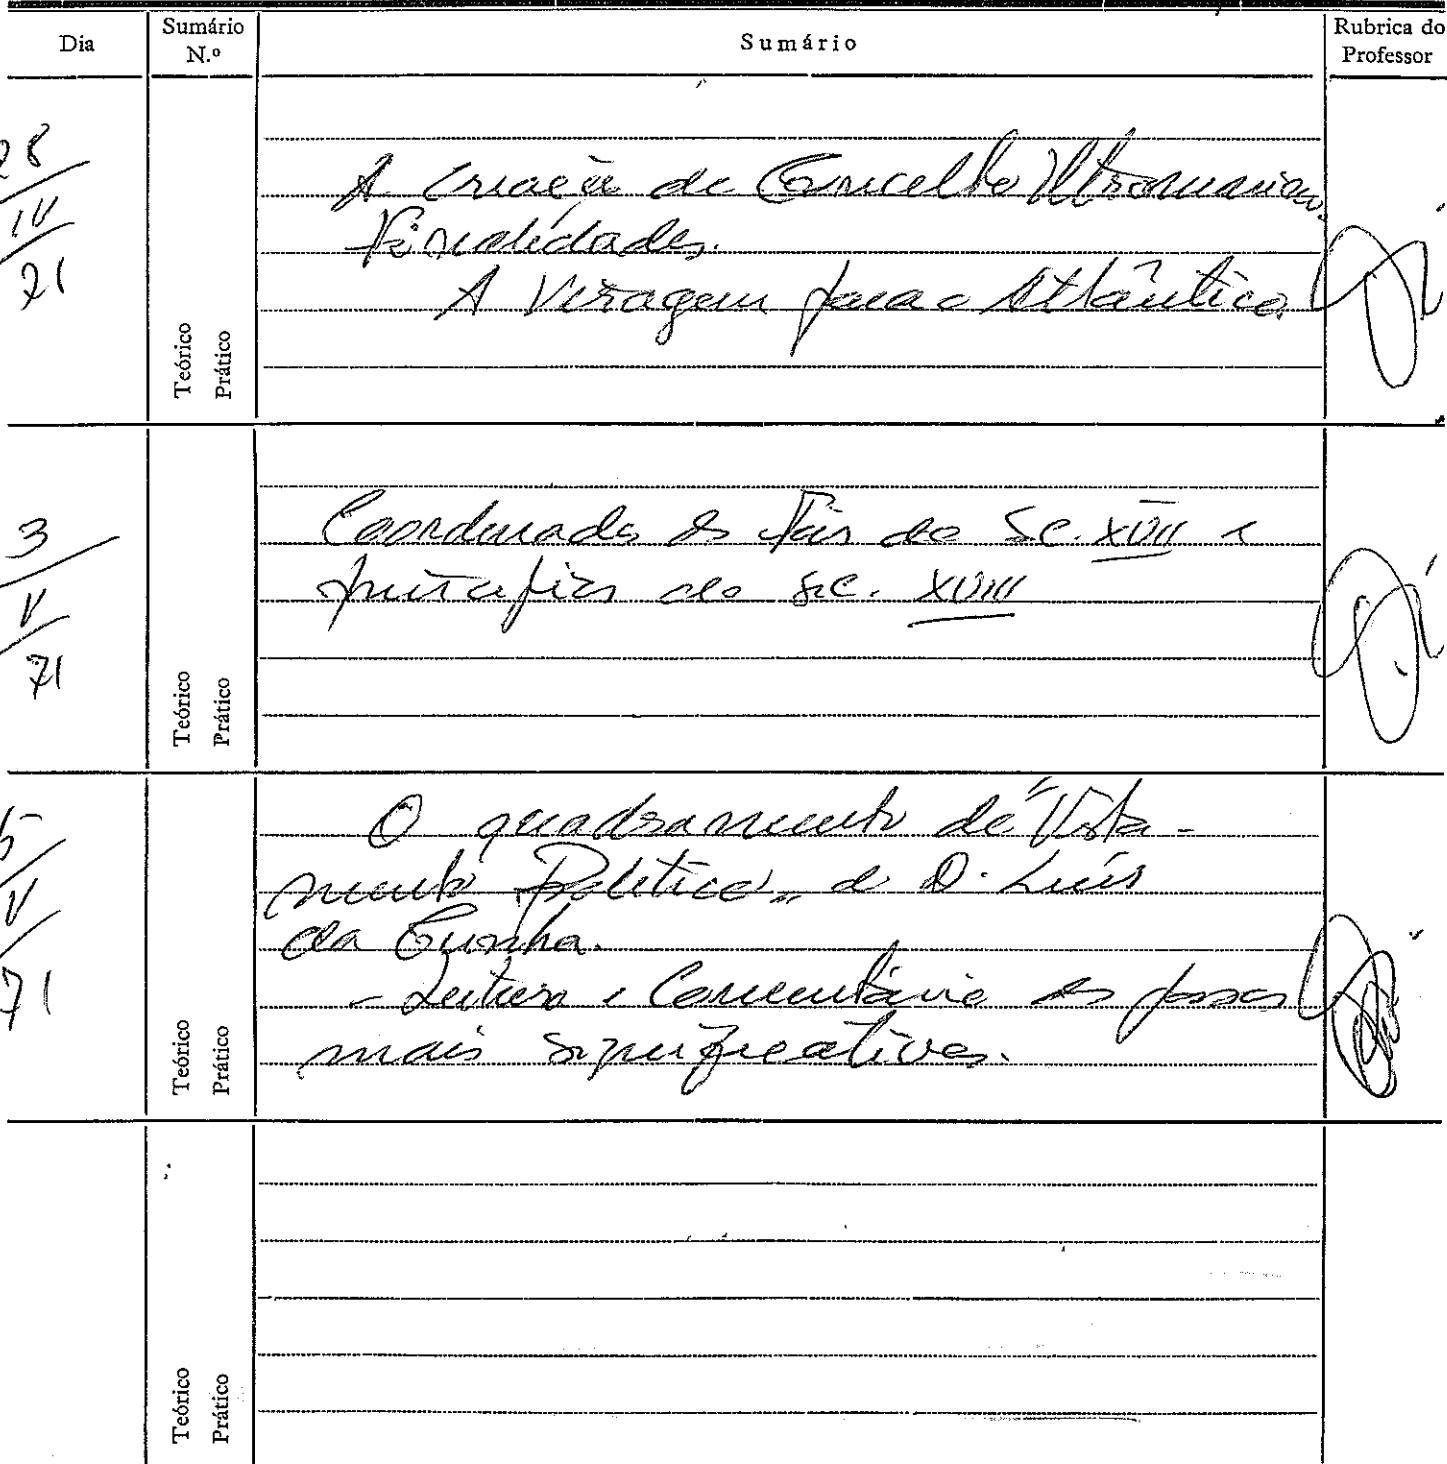 Dia
Sumário N.º
Sumário
Rubrica do Professor
28/IV/71
A criação do Concelho Ultramarino.
Finalidades.
A Viragem para o Atlântico.
Teórico
Prático
3/V/71
Coordenadas do fim do Séc. XVII e
do Séc. XVIII
Teórico
Prático
5/V/71
O quadramento do "Testa-
mento Político" de D. Luís
da Cunha.
- Leitura e Comentário dos passos
mais significativos.
Teórico
Prático
Teórico
Prático